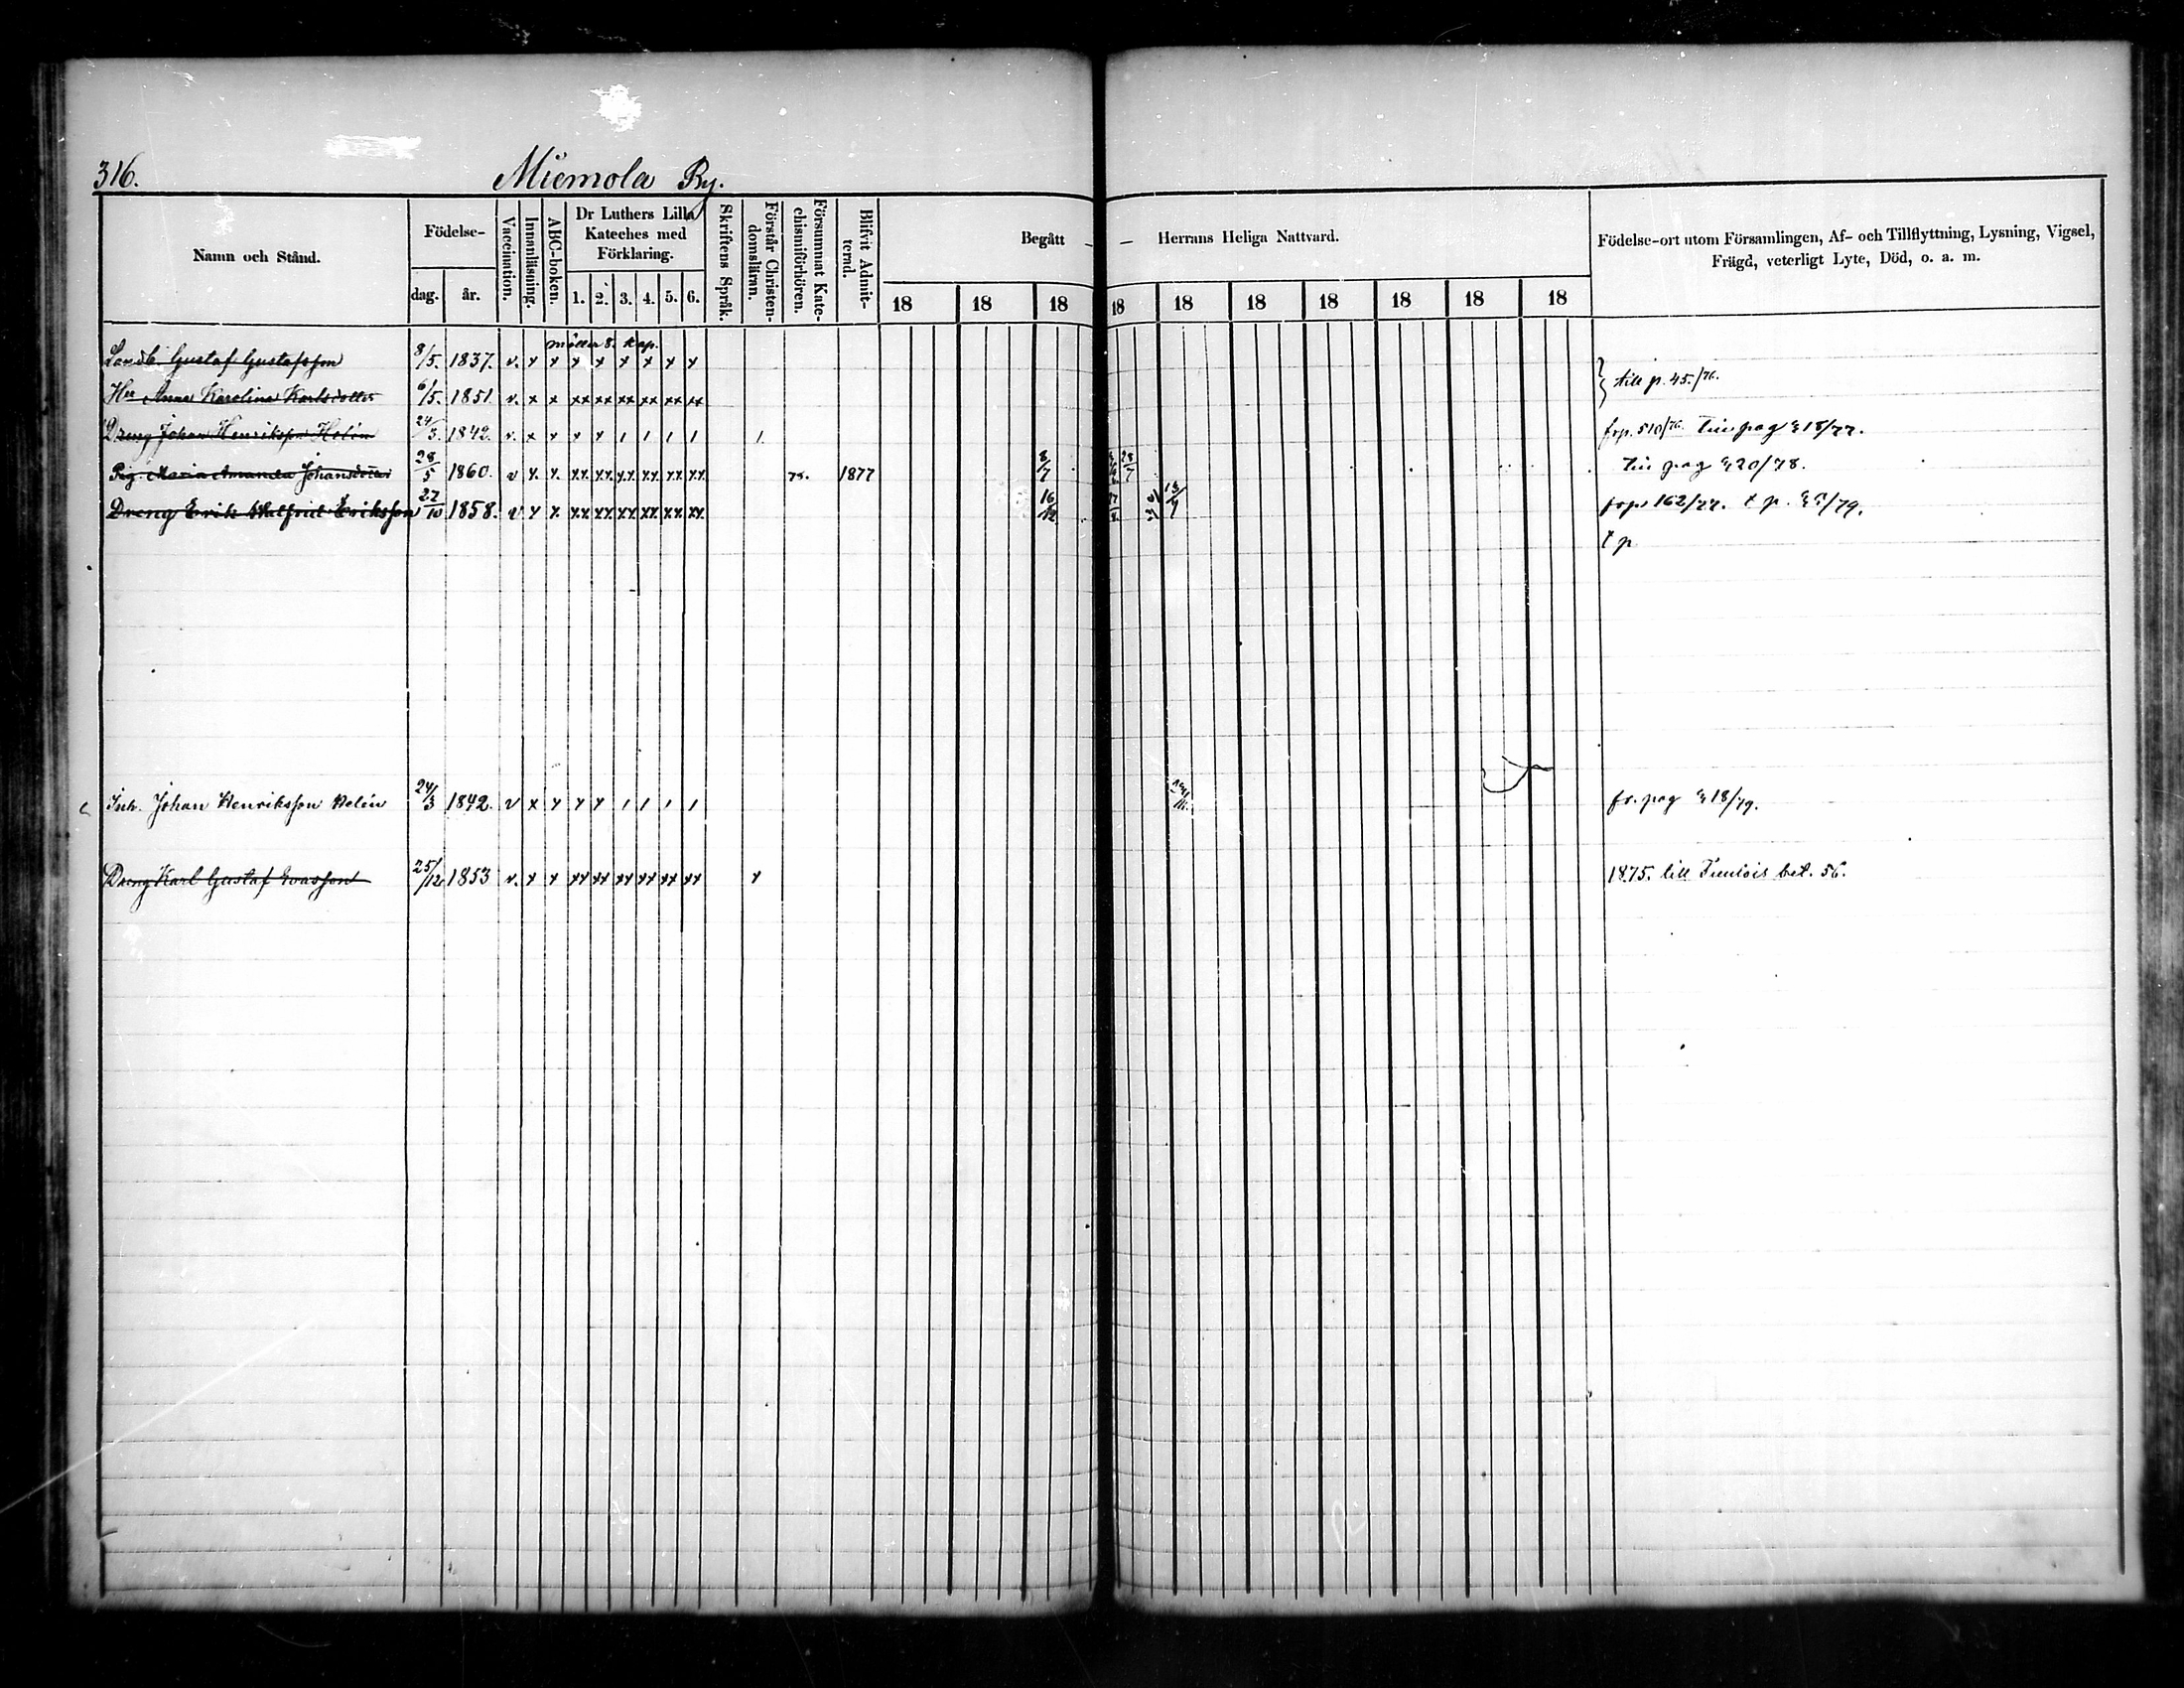 316.
Miemola By.
Namn och Stånd.
Födelse-
dag. år.
Vaccination.
Innanläsning.
ABC-boken.
Dr Luthers Lilla Kateches med Förklaring.
1. 2. 3. 4. 5. 6.
Skriftens Språk.
Förstår Christendomsläran.
Försummat Katechismiförhören.
Blifvit Admitterad.
Begått — — Herrans Heliga Nattvard.
18 18 18 18 18 18 18 18 18 18
Födelse-ort utom Församlingen, Af- och Tillflyttning, Lysning, Vigsel,
Frägd, veterligt Lyte, Död, o. a. m.
8. Kap.
Landb Gustaf Gustafsson 8/5. 1837. v. x x x x x x x x till p. 45./76.
Hu Anna Karolina Karlsdotter 6/5. 1851. v. x x xx xx xx xx xx xx
Dreng Johan Henriksson Helin 24/3. 1842. v. x x x x / / / / / frp. 510/76.
Pig. Maria Amanda Johansdotter 28/5 1860. v x. x. xx xx xx xx xx xx 1877 8/7 28/7
Dreng Erik Walfrid Eriksson 27/10 1858. v x x xx xx xx xx xx xx 16/12 frp. 162/77.
t p
Inh. Johan Henriksson Helin 24/3 1842. v x x x x / / / / fr. pag
Dreng Karl Gustaf Evasson 25/12 1853 v. x x xx xx xx xx xx xx x 1875. till Tuulois bet. 56.